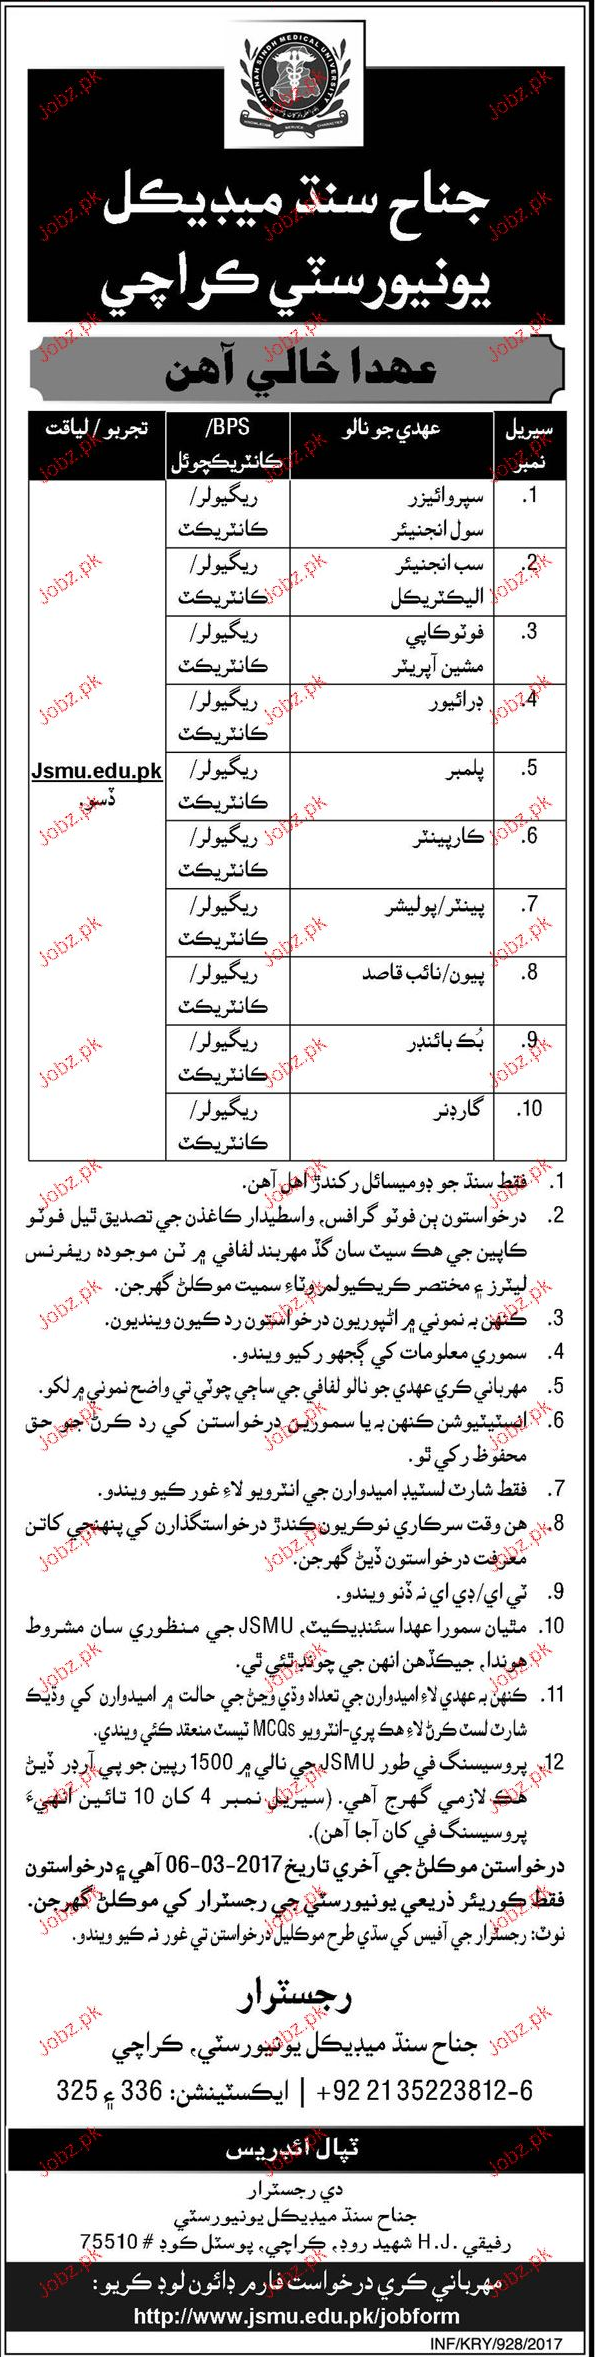 JINNAH SINDH MEDICAL UNIVERSITY
KNOWLEDGE SERVICE CHARACTER
جناح سنڌ ميڊيڪل
يونيورسٽي ڪراچي
عهدا خالي آهن
سيريل نمبر | عهدي جو نالو | BPS/ ڪانٽريڪچوئل | تجربو / لياقت
1. سپروائيزر سول انجنيئر | ريگيولر/ ڪانٽريڪٽ
2. سب انجنيئر اليڪٽريڪل | ريگيولر/ ڪانٽريڪٽ
3. فوٽوڪاپي مشين آپريٽر | ريگيولر/ ڪانٽريڪٽ
4. ڊرائيور | ريگيولر/ ڪانٽريڪٽ
5. پلمبر | ريگيولر/ ڪانٽريڪٽ
Jsmu.edu.pk
ڏسو.
6. ڪارپينٽر | ريگيولر/ ڪانٽريڪٽ
7. پينٽر/پوليشر | ريگيولر/ ڪانٽريڪٽ
8. پيون/نائب قاصد | ريگيولر/ ڪانٽريڪٽ
9. بُڪ بائنڊر | ريگيولر/ ڪانٽريڪٽ
10. گارڊنر | ريگيولر/ ڪانٽريڪٽ
1. فقط سنڌ جو ڊوميسائل رکندڙ اهل آهن.
2. درخواستون ٻن فوٽو گرافس، واسطيدار ڪاغذن جي تصديق ٿيل فوٽو
ڪاپين جي هڪ سيٽ سان گڏ مهربند لفافي ۾ ٽن موجوده ريفرنس
ليٽرز ۽ مختصر ڪريڪيولم وٽاءِ سميت موڪلڻ گهرجن.
3. ڪنهن به نموني ۾ اڻپوريون درخواستون رد ڪيون وينديون.
4. سموري معلومات کي ڳجهو رکيو ويندو.
5. مهرباني ڪري عهدي جو نالو لفافي جي ساڄي چوٽي تي واضح نموني ۾ لکو.
6. انسٽيٽيوشن ڪنهن به يا سمورين درخواستن کي رد ڪرڻ جو حق
محفوظ رکي ٿو.
7. فقط شارٽ لسٽيڊ اميدوارن جي انٽرويو لاءِ غور ڪيو ويندو.
8. هن وقت سرڪاري نوڪريون ڪندڙ درخواستگذارن کي پنهنجي کاتن
معرفت درخواستون ڏيڻ گهرجن.
9. ٽي اي/ڊي اي نه ڏنو ويندو.
10. مٿيان سمورا عهدا سئنڊيڪيٽ، JSMU جي منظوري سان مشروط
هوندا، جيڪڏهن انهن جي چونڊ ٿئي ٿي.
11. ڪنهن به عهدي لاءِ اميدوارن جي تعداد وڌي وڃڻ جي حالت ۾ اميدوارن کي وڌيڪ
شارٽ لسٽ ڪرڻ لاءِ هڪ پري-انٽرويو MCQs ٽيسٽ منعقد ڪئي ويندي.
12. پروسيسنگ في طور JSMU جي نالي ۾ 1500 رپين جو پي آرڊر ڏيڻ
هڪ لازمي گهرج آهي. (سيريل نمبر 4 کان 10 تائين انهيءَ
پروسيسنگ في کان آجا آهن).
درخواستن موڪلڻ جي آخري تاريخ 06-03-2017 آهي ۽ درخواستون
فقط ڪوريئر ذريعي يونيورسٽي جي رجسٽرار کي موڪلڻ گهرجن.
نوٽ: رجسٽرار جي آفيس کي سڌي طرح موڪليل درخواستن تي غور نه ڪيو ويندو.
رجسٽرار
جناح سنڌ ميڊيڪل يونيورسٽي، ڪراچي
+92 21 35223812-6 | ايڪسٽينشن: 336 ۽ 325
ٽپال ائڊريس
دي رجسٽرار
جناح سنڌ ميڊيڪل يونيورسٽي
رفيقي H.J. شهيد روڊ، ڪراچي، پوسٽل ڪوڊ # 75510
مهرباني ڪري درخواست فارم ڊائون لوڊ ڪريو:
http://www.jsmu.edu.pk/jobform
INF/KRY/928/2017
Jobz.pk